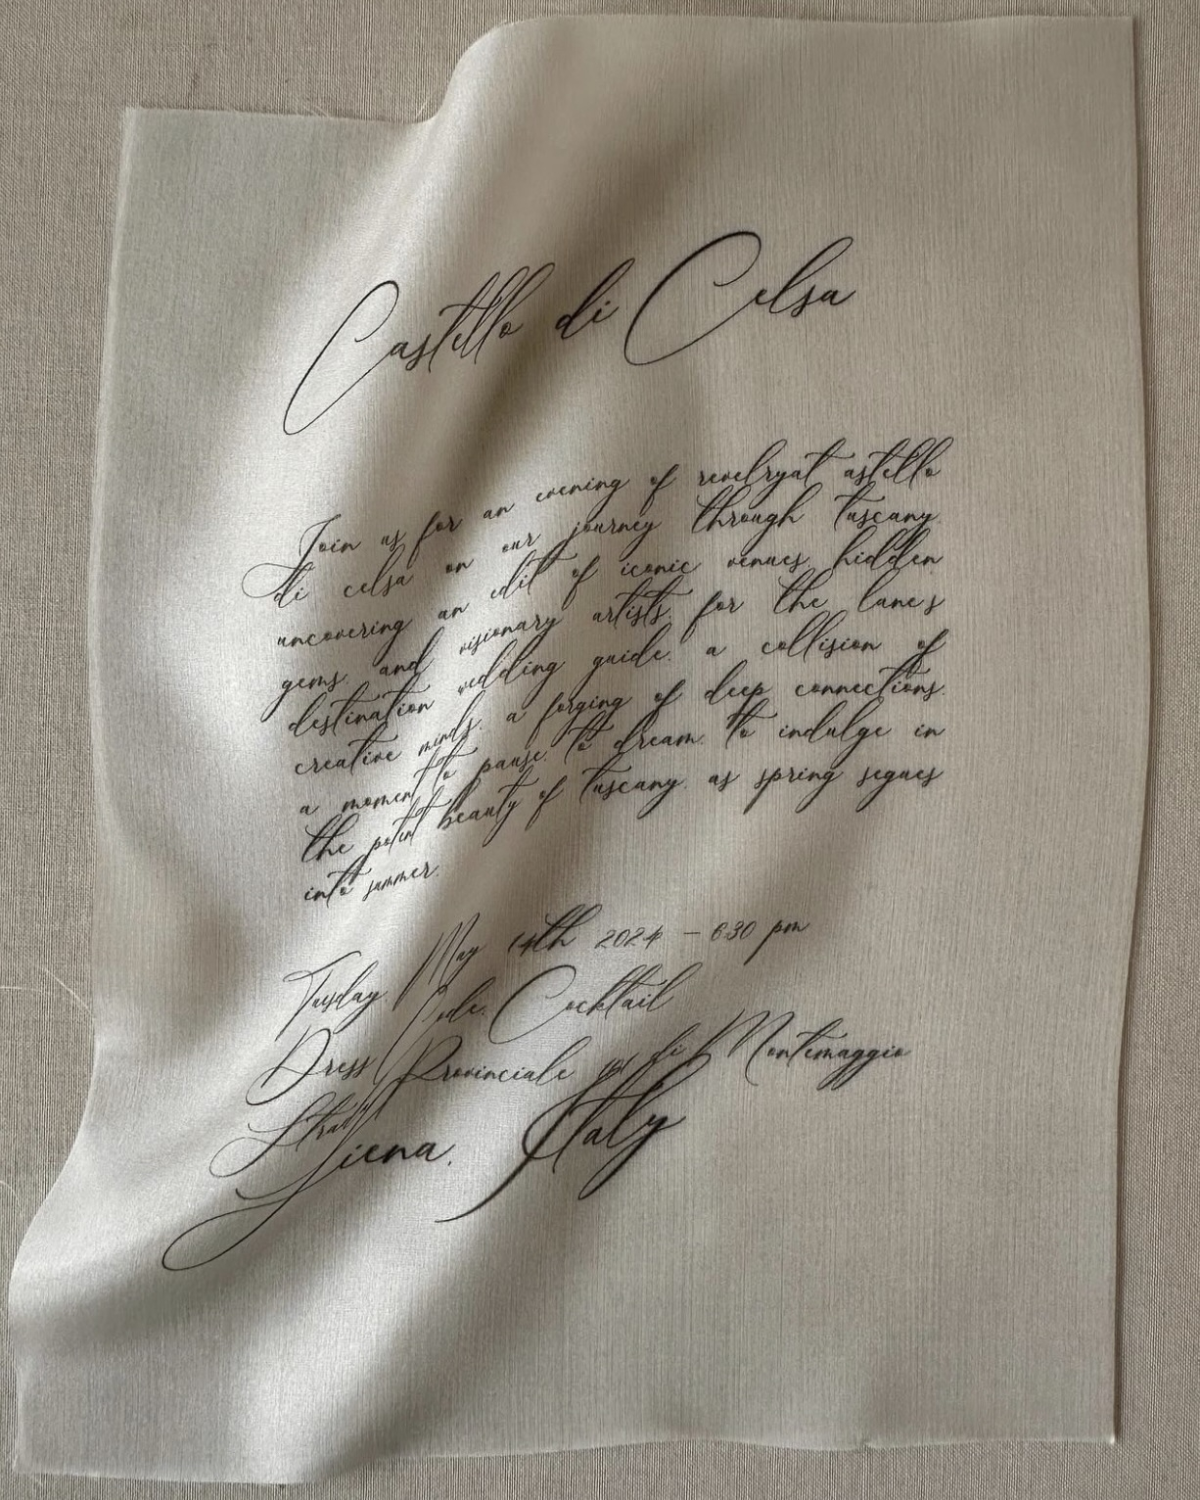 Castello di Celsa
Join us for an evening of revelryat astello
di celsa on our journey through tuscany.
uncovering an edit of iconic venues, hidden
gems, and visionary artists, for the lane's
destination wedding guide. a collision of
creative minds. a forging of deep connections.
a moment to pause. to dream. to indulge in
the potent beauty of tuscany, as spring segues
into summer.
Tuesday May 14th 2024 – 6:30 pm
Dress Code: Cocktail
Strada Provinciale di Montemaggio
Siena, Italy